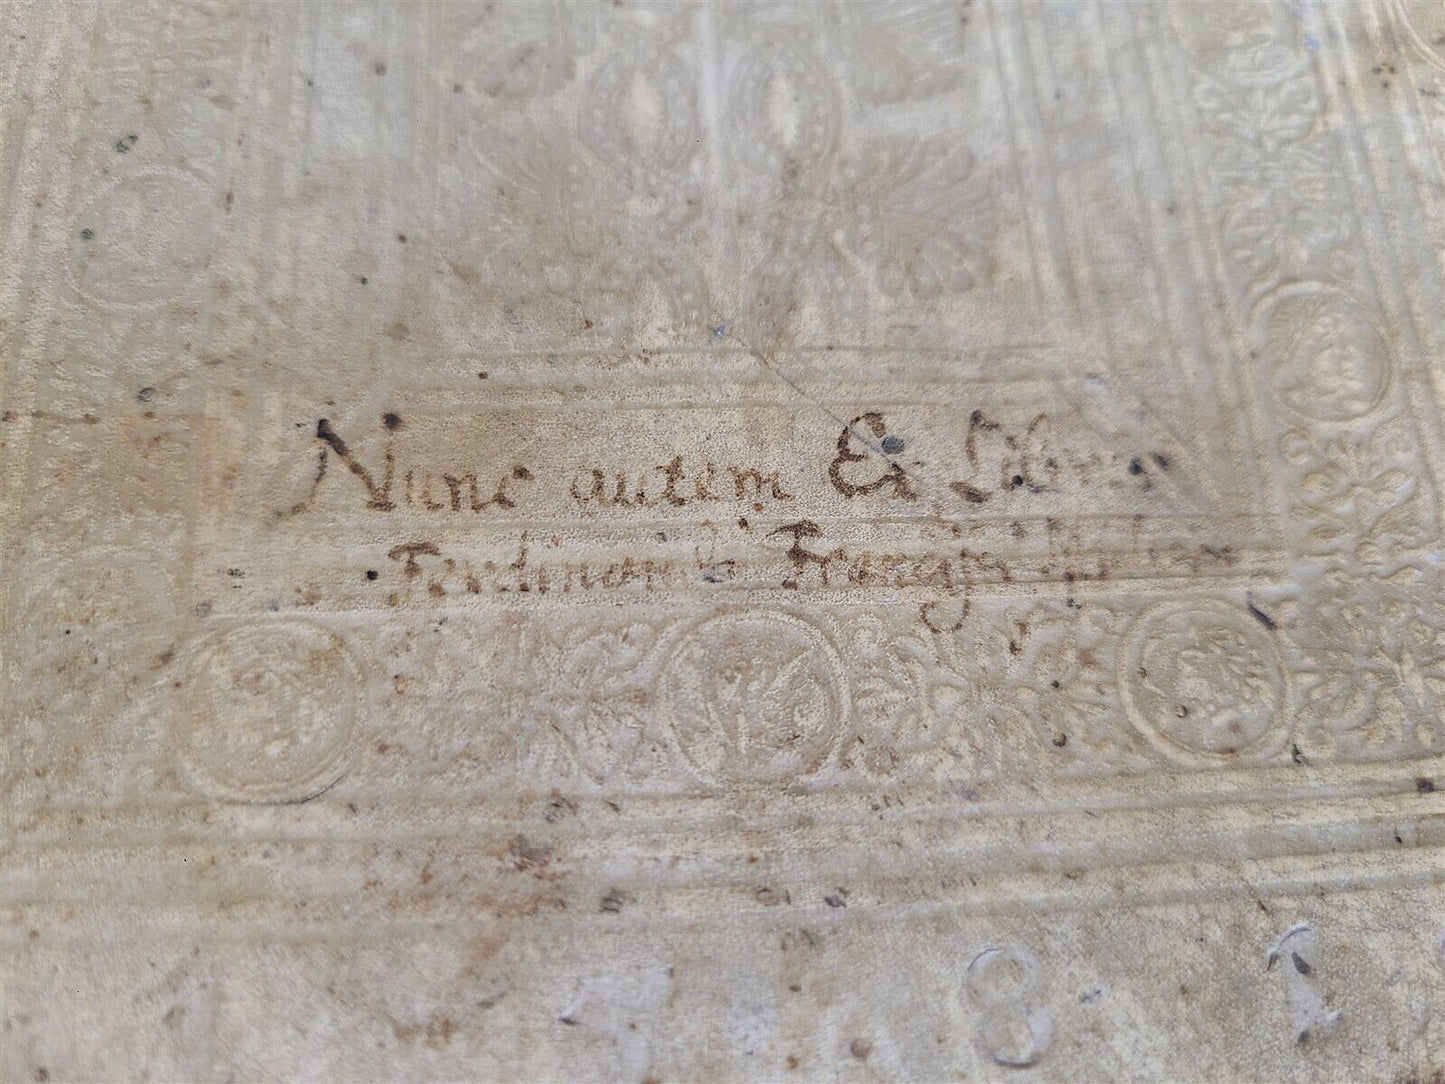 Nunc autem Ex Libris
Ferdinandi Francisci
81